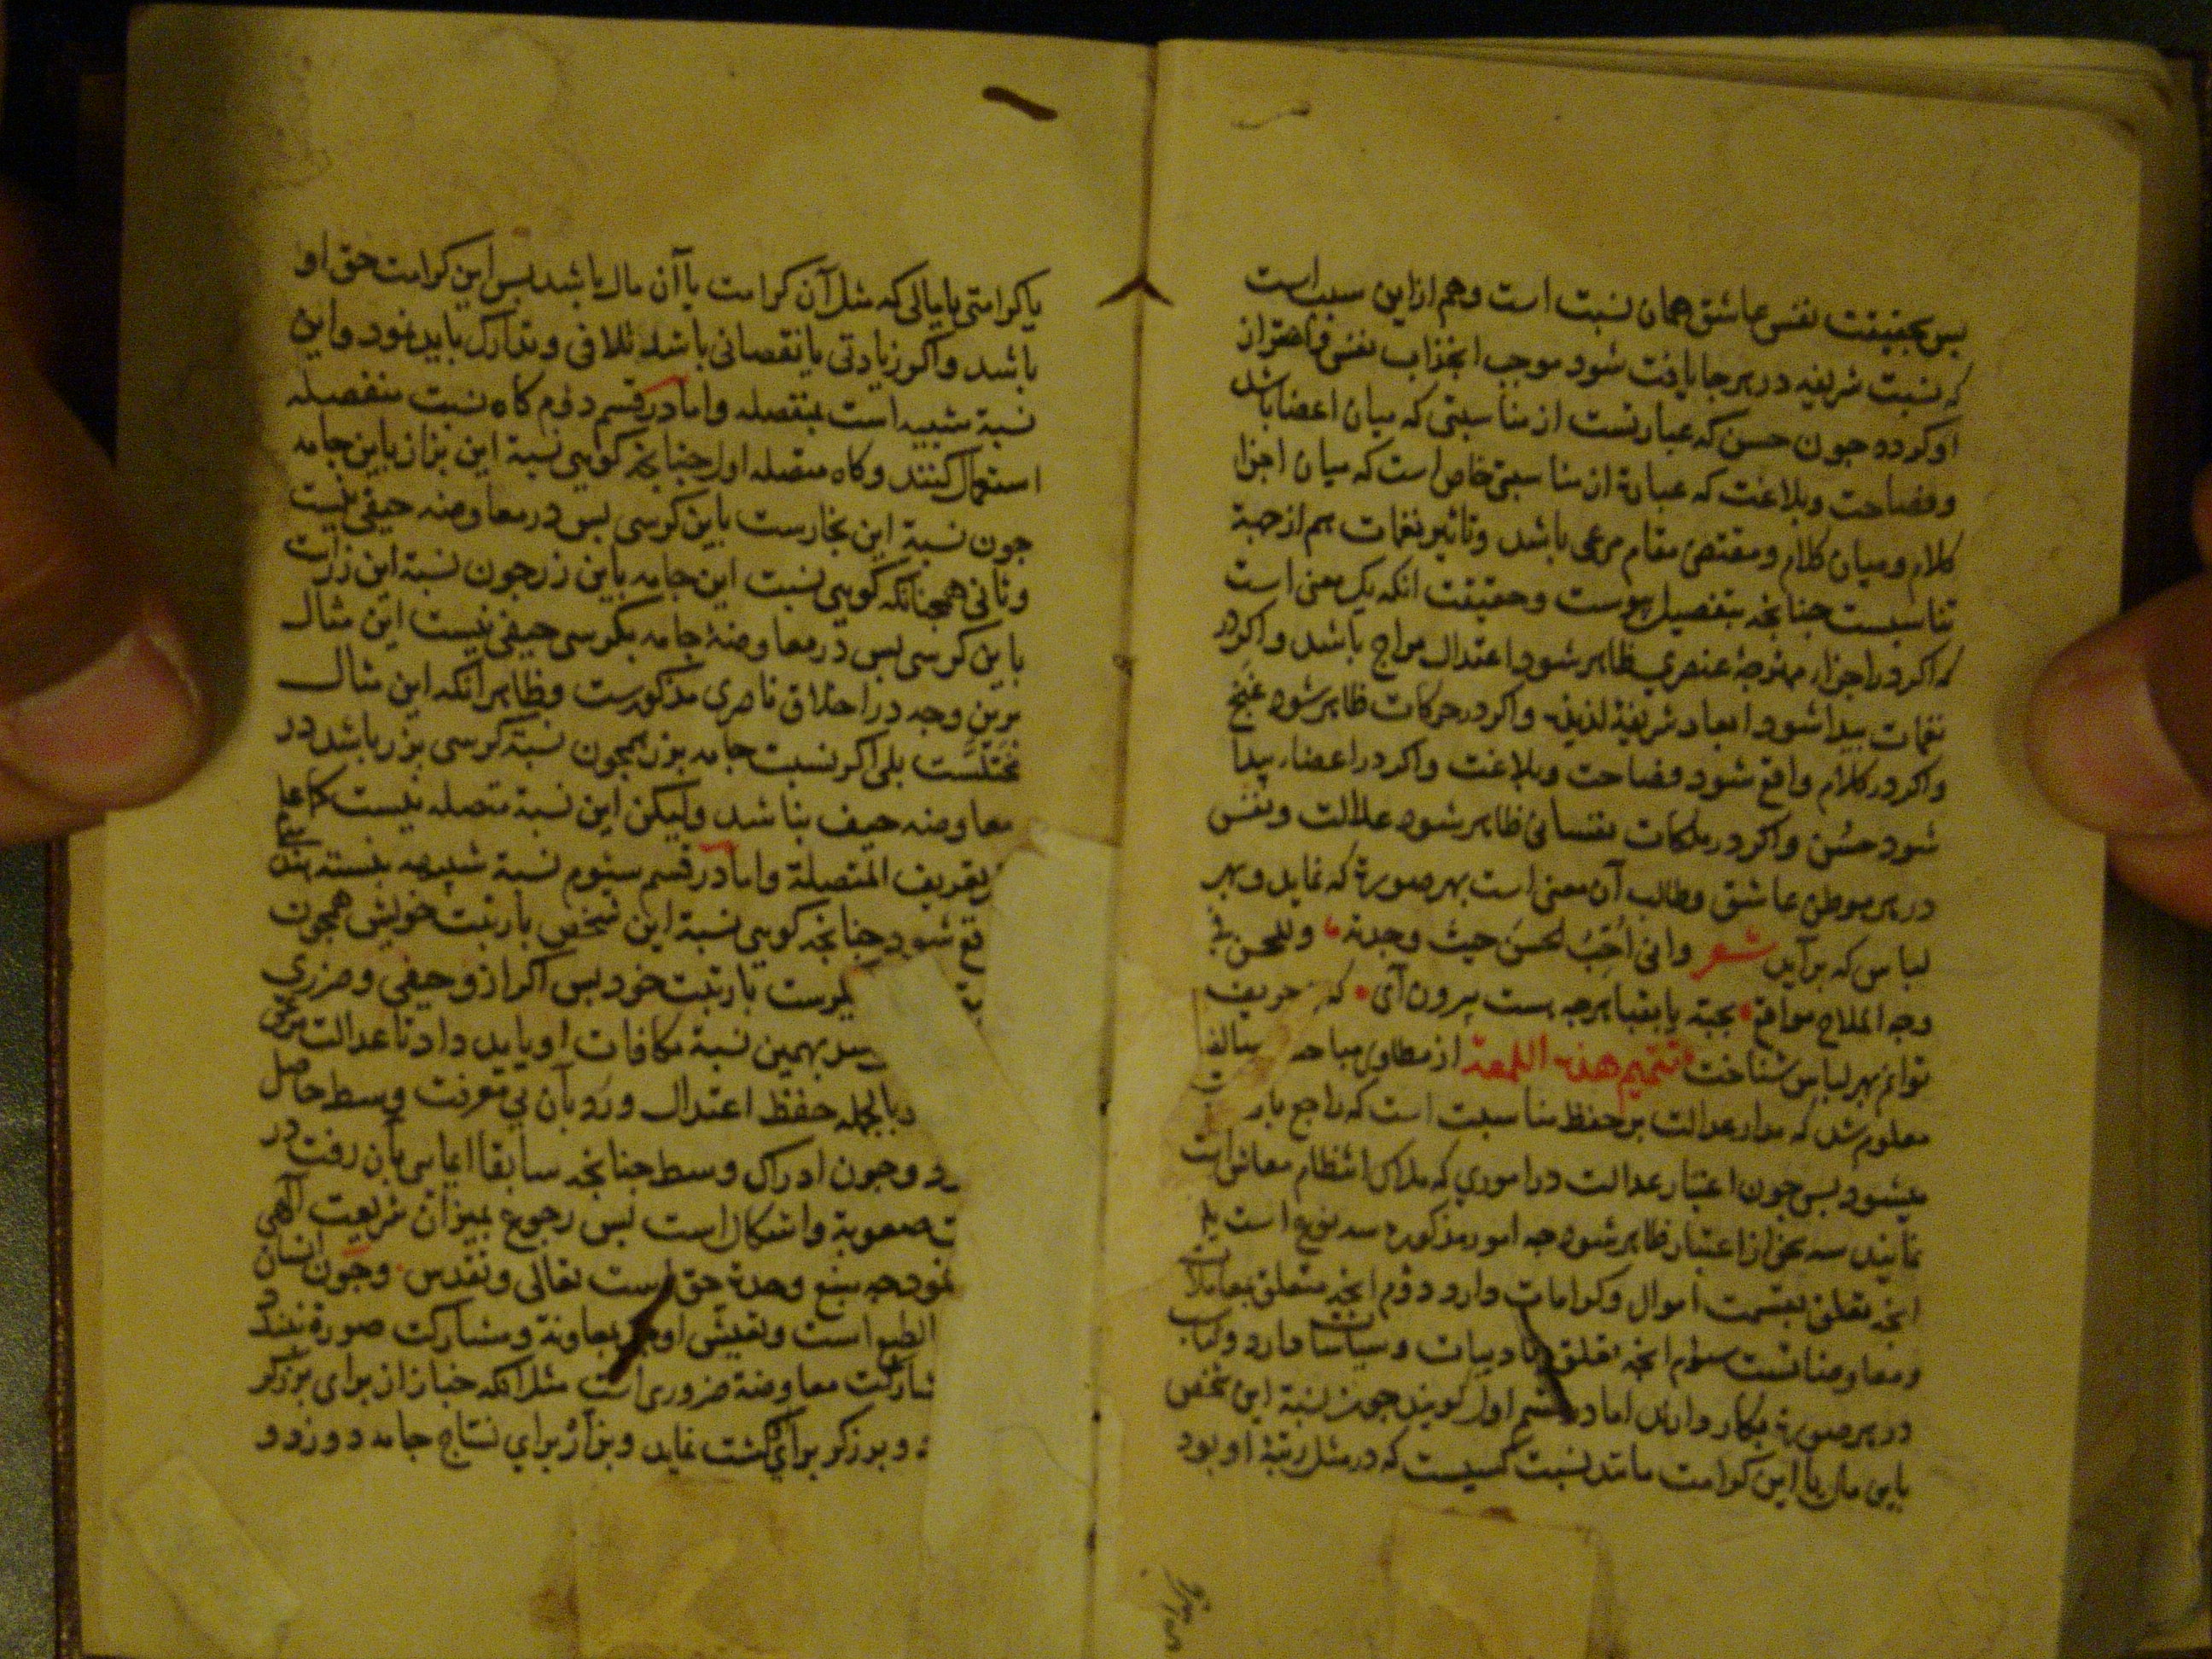 پس بحقیقت نفس عاشق همان نسبت است وهم ازاین سبب است
که نسبت شریفه در هرجا یافت شود موجب انجذاب نفس و اهتزاز
او کردد جون حسن که عبارتست از مناسبتی که میان اعضا باشد
وفصاحت وبلاغت که عبارة از مناسبتی خاص است که میان اجزا
کلام ومیان کلام ومقتضی مقام مرعی باشد وتاثیر نغمات هم از جهة
تناسبست جنانجه بتفصیل پیوست وحقیقت انکه یک معنی است
که اکر در اجزاء ممتزجۀ عنصری ظاهر شود اعتدال مزاج باشد واکر در
نغمات پیدا شود ابعاد شریفۀ لذیذه واکر در حرکات ظاهر شود غنج
واکر در کلام واقع شود فصاحت وبلاغت واکر در اعضاء پیدا
شود حُسن واکر در ملکات نفسانی ظاهر شود عدالت ونفس
در هر موطن عاشق وطالب آن معنی است بهر صورة که نماید و بهر
لباس که برآید شعر وانی اُحِبُّ لحسنَ حیث وجدته وللحسن فی
وجه الملاح مواقع بجبه یا بقبا هرجه هست بیرون آی که حریف
توانم بهر لباس شناخت تتمیم هذه اللمعة از مطاوی مباحث سالفه
معلوم شد که مدار عدالت بر حفظ مناسبت است که راجع بار
میشود پس جون اعتبار عدالت در اموری که ملاک انتظام معاش است
نمایند سه نحو از اعتبار ظاهر شود جه امور مذکوره سه نوع است یکی
انجه تعلق بقسمت اموال وکرامات دارد دوّم انجه متعلق بمعاملات
ومعاوضاتست سوم انجه تعلق بتادیبات وسیاسات دارد وتناسب
در هر صورة بکار دارند اما در قسم اول کویند جون نسبة این شخص
باین مال یا این کرامت مانند نسبت کسیست که در مثل رتبۀ او بود
یا کرامتی یا مالی که مثل آن کرامت یا آن مال باشد پس این کرامت حق او
باشد واکر زیادتی یا نقصانی باشد تلافی وتدارک باید نمود واین
نسبة شبیه است بمنفصله واما در قسم دوم کاه نسبت منفصله
استعمال کنند وکاه متصله اول جنانجه کویی نسبة این بزاز باین جامه
جون نسبة این نجارست باین کرسی پس در معاوضه حیفی نیست
وثانی همجنانکه کویی نسبت این جامه باین زر جون نسبة این زرات
باین کرسی پس در معاوضۀ جامه بکرسی حیفی نیست این مثال
برین وجه در اخلاق ناصری مذکورست وظاهر انکه این مثال
مختلّست بلی اکر نسبت جامه بزر همجون نسبة کرسی بزر باشد در
معاوضه حیف نباشد ولیکن این نسبة متصله نیست کما علم
تعریف المتصلة واما در قسم سیّوم نسبة شبیهه بنسبته هند
قع شود جنانجه کویی نسبة این شخص با رتبت خویش همجون
یکرست با رتبت خود پس اکر ازو حیفی وضرری
رسد بهمین نسبة مکافات او باید داد تا عدالت مرعی
دبالجمله حفظ اعتدال ورد بآن بی معرفت وسط حاصل
د وجون ادراک وسط جنانجه سابقا ایماسی بآن رفت در
ت صعوبة واشکال است پس رجوع بمیزان شریعت آلهی
نمود جه منبع وحدة حق است تعالی وتقدس وجون انسان
الطبع است وتعیشی او جز بمعاونة ومشارکت صورة نبندد
شارکت معاوضة ضروری است مثلا انکه خباز از برای برزکر
وبرزکر برای کشت نماید وبزاز برای نساج جامه دوزد و